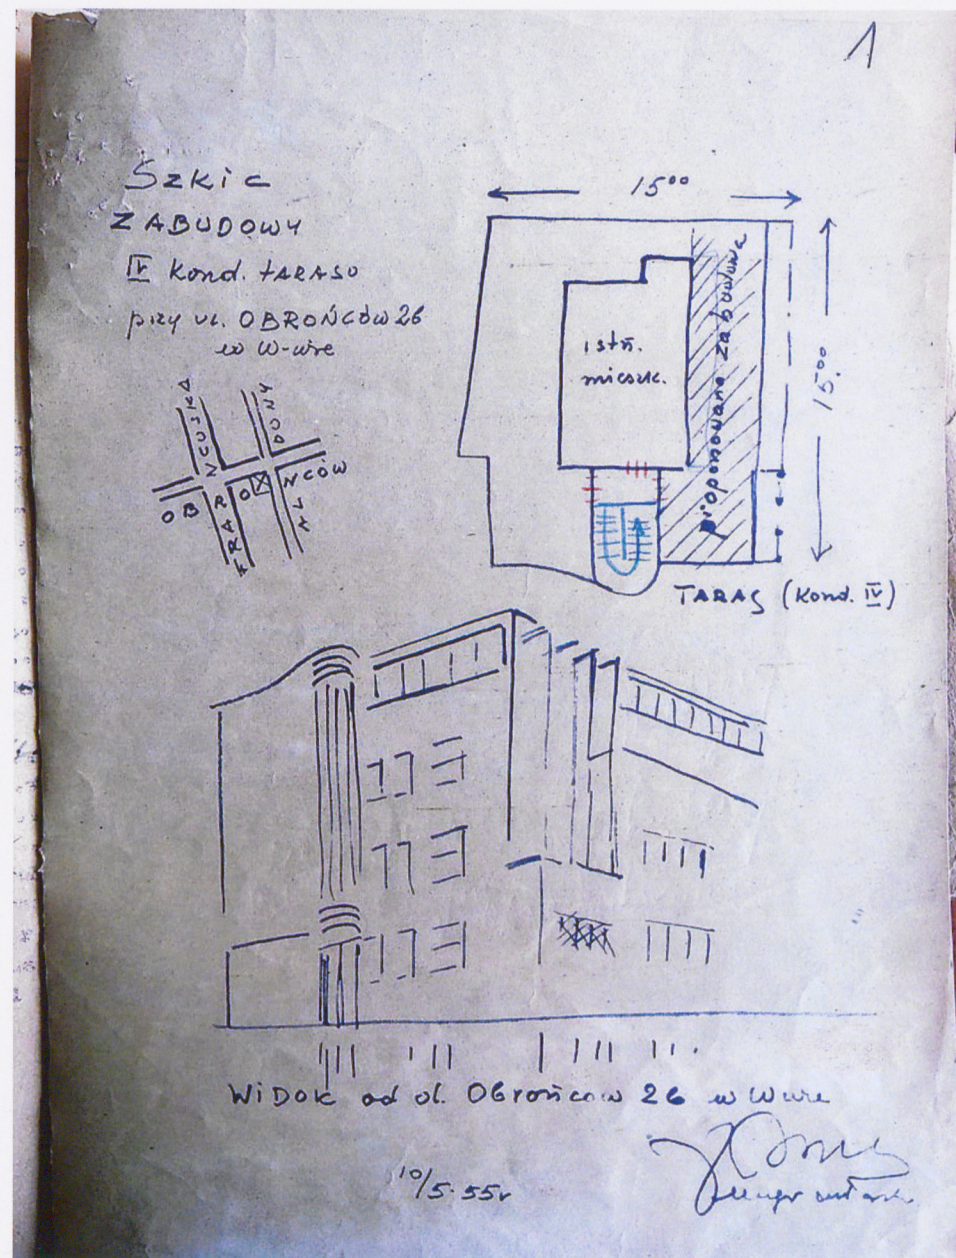 1
Szkic
ZABUDOWY
IV Kond. TARASU
przy ul. OBROŃCÓW 26
w W-wie
15⁰⁰
FRANCUSKA
DUNY
OBROŃCÓW
AL
istn.
mieszk.
Proponowana zabudowa
15.⁰⁰
TARAS (Kond. IV)
WIDOK od ul. Obrońców 26 w Wwie
10/5.55r